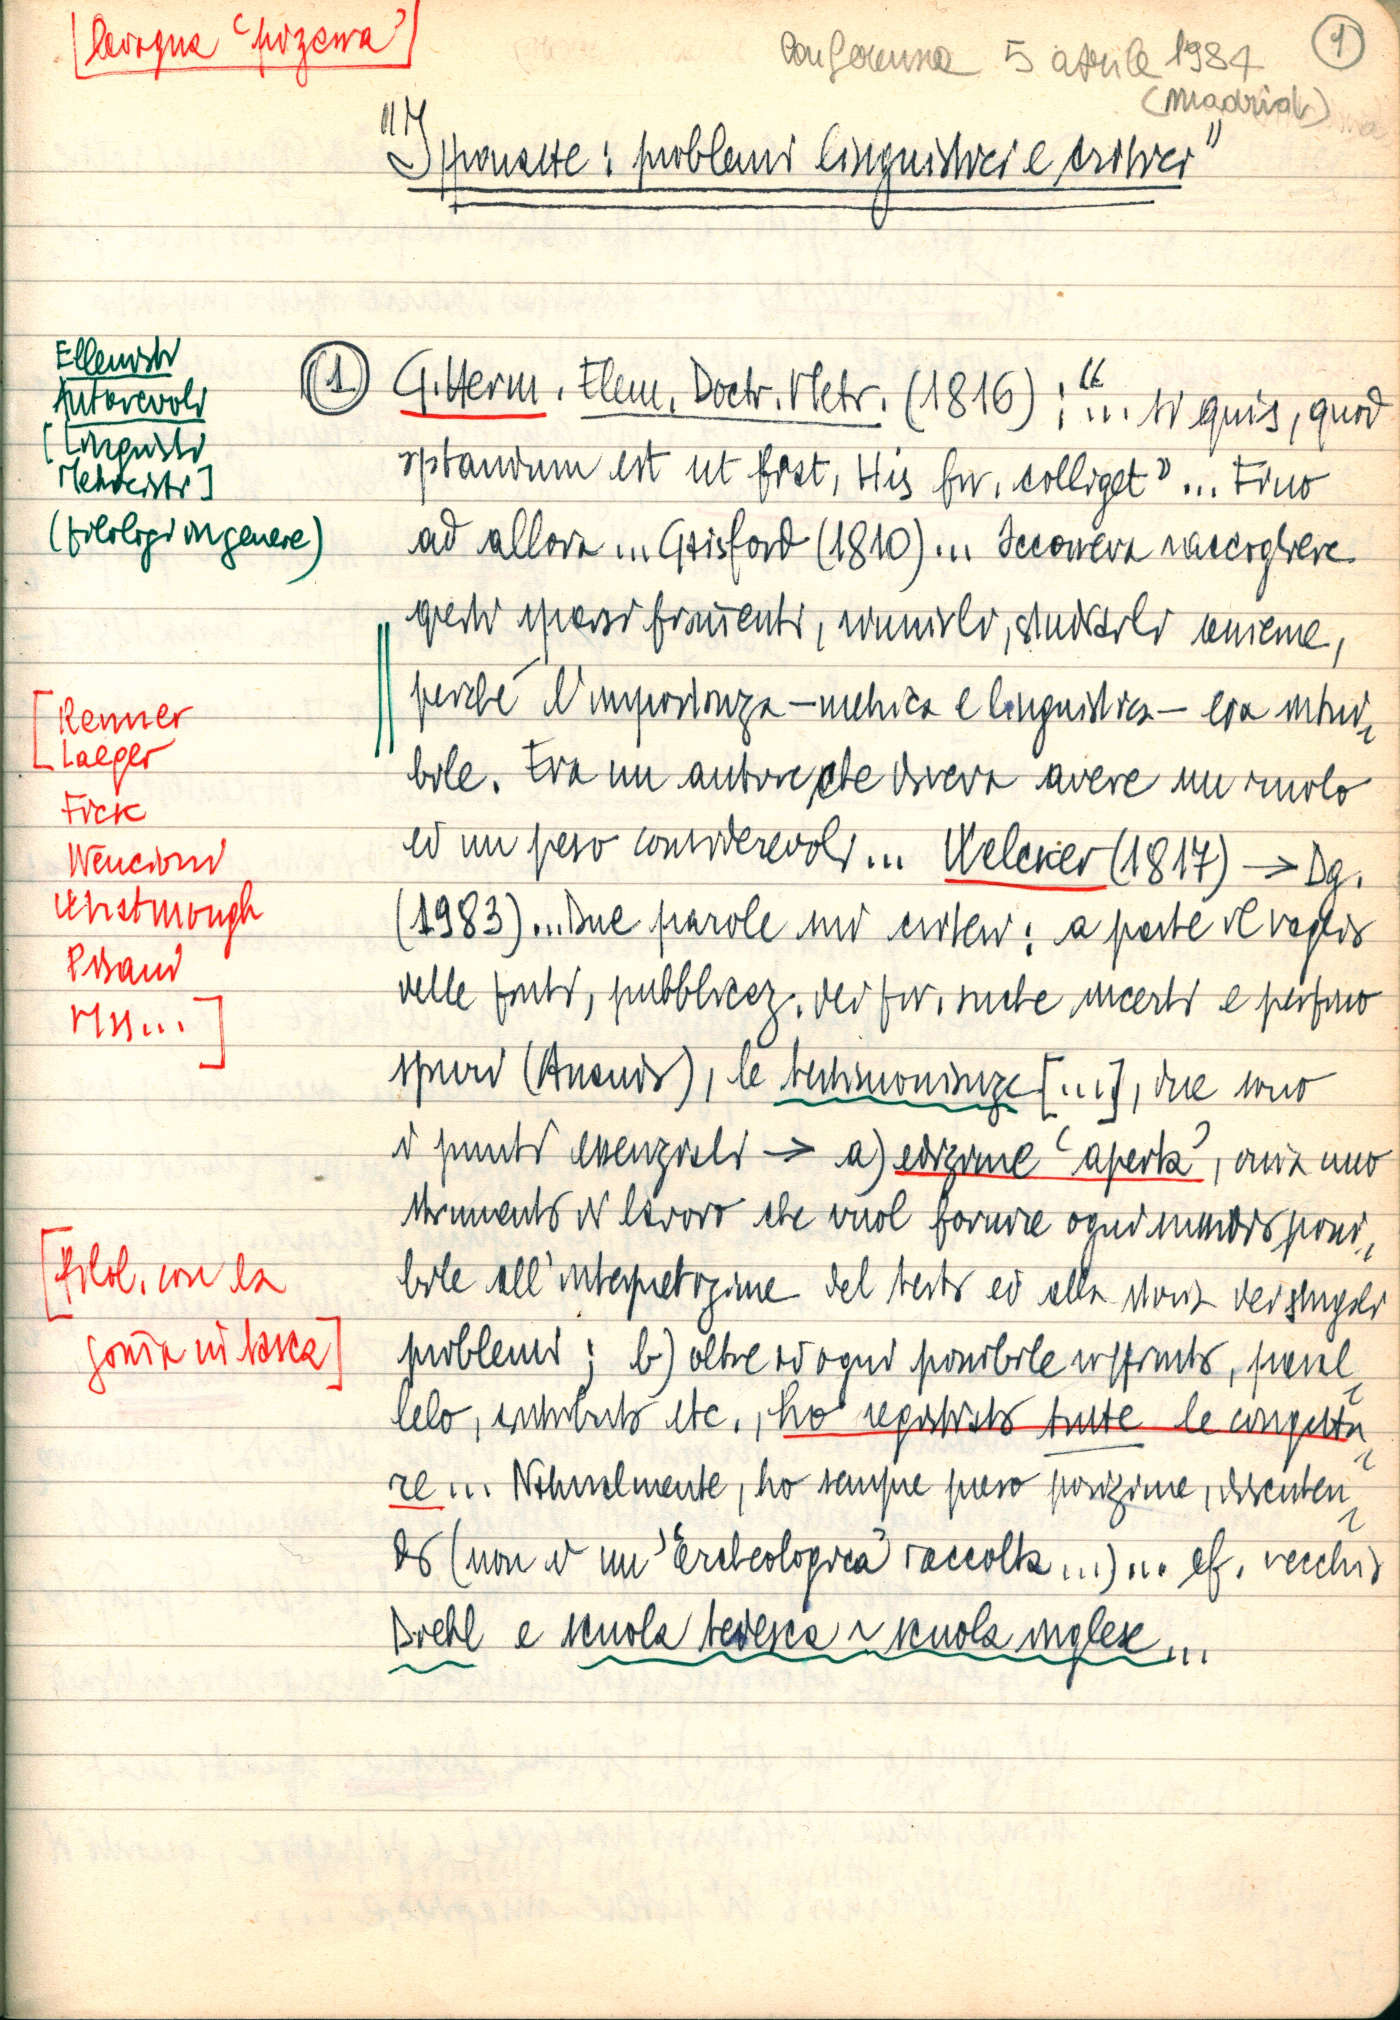 [lavagna 'pizarra']
Conferenza 5 aprile 1984
(Madrid)
1
"Ipponatte: problemi linguistici e critici"
Ellenisti
Autorevoli
[Linguisti
Metricisti]
(filologi in genere)
1 G. Herm. Elem. Doctr. Metr. (1816): "... si quis, quod
optandum est ut fiat, His fr. colliget" ... Fino
ad allora ... Gaisford (1810) ... Occorreva raccogliere
questi sparsi frammenti, riunirli, studiarli insieme,
perché l'importanza – metrica e linguistica – era intui-
bile. Era un autore che doveva avere un ruolo
ed un peso considerevoli ... Welcker (1817) → Dg.
(1983) ... Due parole sui criteri: a parte il vaglio
delle fonti, pubblicaz. dei fr. anche incerti e perfino
spuri (Ananio), le testimonianze [...], due sono
i punti essenziali → a) edizione 'aperta', ossia uno
strumento di lavoro che vuol fornire ogni dis poni-
bile all'interpretazione del testo ed alla storia dei singoli
problemi; b) oltre ad ogni possibile raffronto, paral-
lelo, contributo etc., ho registrato tutte le congettu-
re ... Naturalmente, ho sempre preso posizione, discuten-
do (non è un' 'archeologica' raccolta ...) ... cf. vecchio
Diehl e scuola tedesca ~ scuola inglese ...
[Renner
Laeger
Fick
Nencioni
Whatmough
Pisani
Mss...]
[Filol. con la
gomma in tasca]